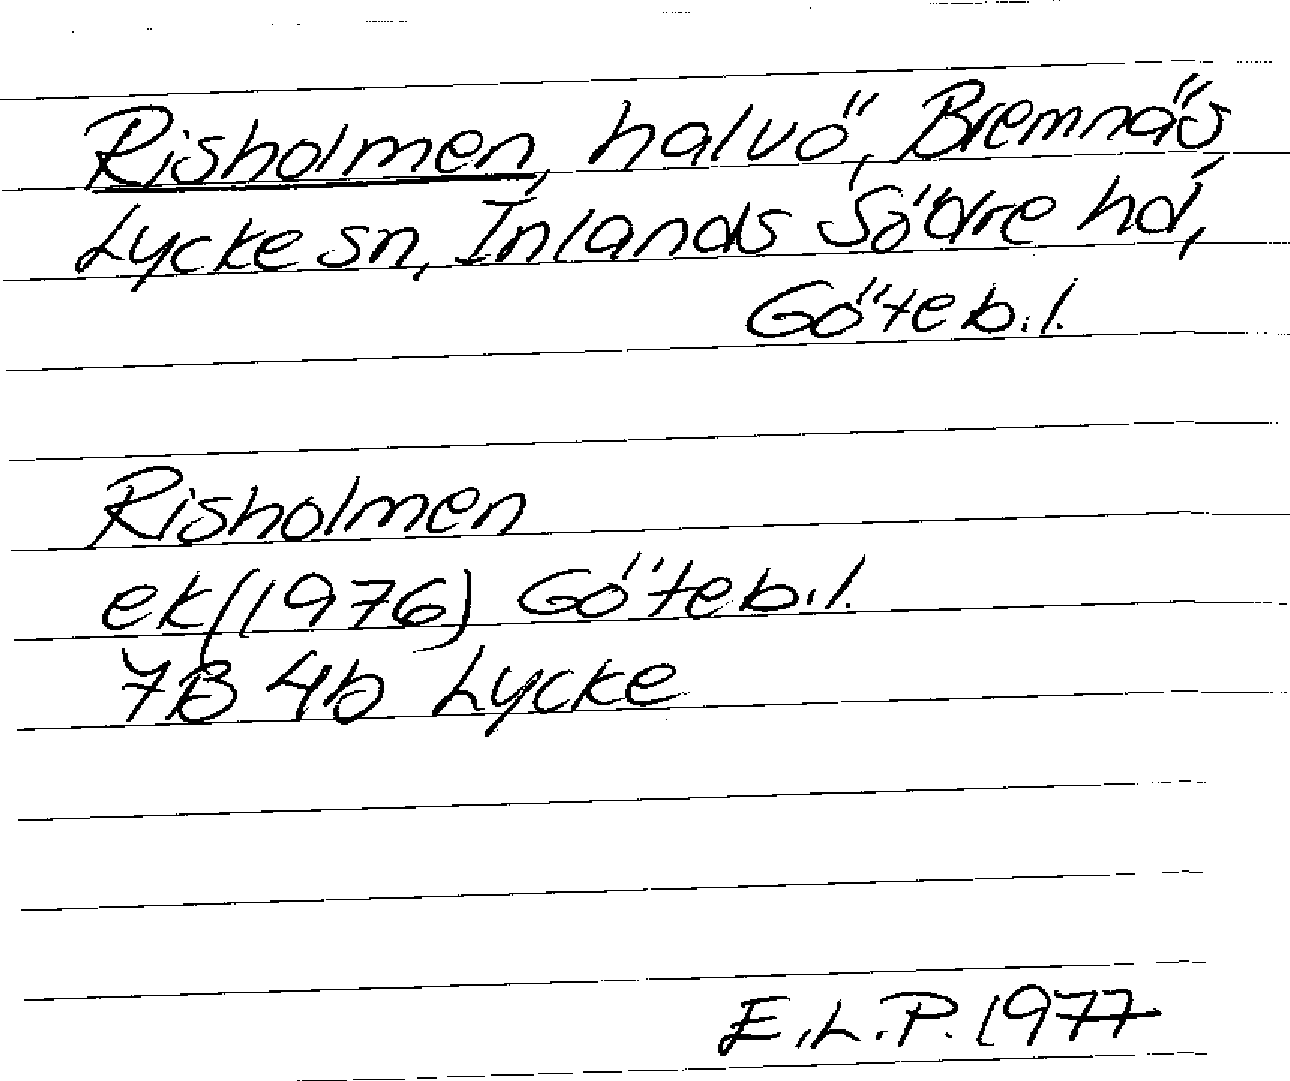 Risholmen, halvö, Bremnäs,
Lycke sn, Inlands Södre hd,
Göteb.l.
Risholmen
ek(1976) Göteb.l.
7B 4b Lycke
E.L.P. 1977